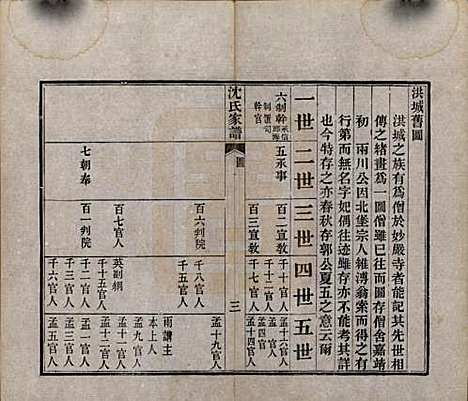 洪城舊圖
洪城之族有為僧於妙嚴寺者能記其先世相
傳之緒畫為一圖僧雖已往而圖存僧舍嘉靖
初兩川公因北堡宗人雜溥翁索而得之然有
行第而無名字妃偶往迹雖存亦不能考其詳
也今特存之亦春秋存郭公夏五之意云爾
一世二世三世四世五世
六制幹
五承事
百二宣教
千十七官人
孟十六官人
百三宣教
千十二官人
孟四官
千十官人
孟十四官人
沈氏家譜
圖
三
百六判院
千八官人
孟十九官人
千五官人
雨講主
百七官人
英副綱
本上人
千十五官人
孟九官人
七朝奉
百一判院
千二官人
孟十一官人
千三官人
孟二官人
千六官人
孟五官人